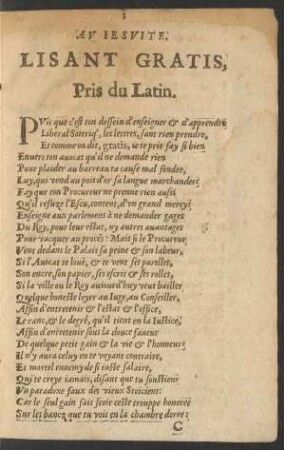 3
AV IESVITE.
LISANT GRATIS,
Pris du Latin.
PVis que c'est ton dessein d'enseigner & d'apprendre
Liberal Soteriq', les lettres, sans rien prendre,
Et comme on dit, gratis, ie te prie fay si bien
Enuers ton auocat qu'il ne demande rien
Pour plaider au barreau ta cause mal fondee,
Luy, qui vend au poid d'or sa langue marchandee;
Fay que ton Procureur ne prenne rien aussi
Qu'il refuze l'Escu, content, d'vn grand mercy;
Enseigne aux parlemens à ne demander gages
Du Roy, pour leur estat, ny autres auantages
Pour vacquer au procés: Mais si le Procureur
Vent dedans le Palais sa peine & son labeur,
Si l'Auocat te loüe, & te vent ses parolles,
Son encre, son papier, ses escris & ses rolles,
Si la ville ou le Roy aujourd'huy veut bailler
Quelque honeste loyer au Iuge, au Conseiller,
Affin d'entretenir & l'estat & l'office,
Le ranc, & le degré, qu'il tient en la Iustice;
Affin d'entretenir sous la douce faueur
De quelque petit gain & la vie & l'honneur;
Il n'y aura celuy en te voyant contraire,
Et mortel ennemy de si iuste salaire,
Qui te croye iamais, disant que tu soustiens
Vn paradoxe faux des vieux Stoiciens:
Car le seul gain fait seoir ceste trouppe honoree
Sur les bancz que tu vois en la chambre doree:
C